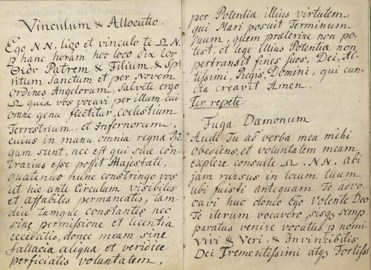 Vinculum & Allocutio.
Ego N N. ligo et vinculo te Ω N. N
p hanc horam hoc loco
Patrem & Filium & Spi
ritum Sanctum et per Novem
ordines Angelorum, Salvete ergo
Ω quia vos vocavi per illum cui
omne genu flectitur, coelestium
Terrestrium, et Infernorum,
cujus in manu omnia regna Re
gum sunt, nec est qui sua con
trarius esse possit Majestati.
Quatenus hunc constringo vos
ut hic ante Circulum visibiles
et affabiles permaneatis, tam
diu tamque constantes nec
sine permissione et licentia
recedatis, donec meam sine
fallacia aliqua et veridice
perficiatis voluntatem.
per Potentia illius virtutem
qui Mari posuit Terminum
suum, quem praeterire non po
test. et lege illius Potentia non
pertransit fines suos, Dei, Al-
tissimi, Regis, Domini, qui cun
cta creavit Amen.
ter repete
Fuga Dæmonum
Audi Tu as verba mea mihi
obediens, et voluntatem meam
capture consule Ω. N N. abi
jam rursus in locum tuum
ubi fuisti antequam Te advo
cavi huc donec Ego Volente Deo
Te iterum vocavero, sisqs semp
paratus venire vocatus p nomi
Vivi & Veri, & Invincibilis
Dei Trementissimi atqs Fortiss